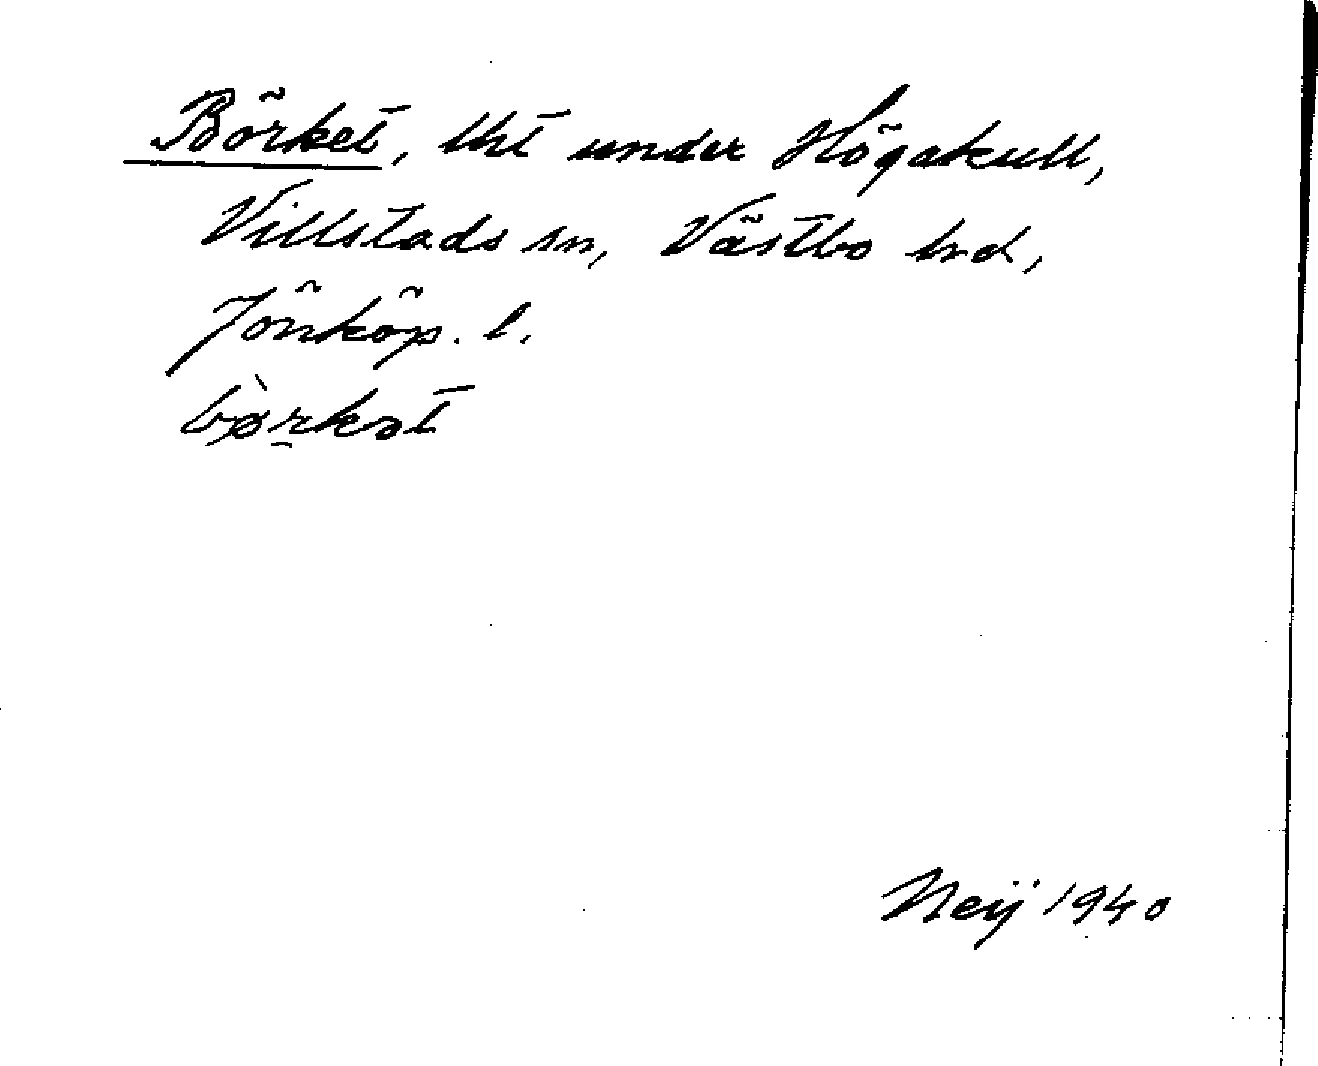 Börket, lht under Högakull,
Villstads sn, Västbo hrd,
Jönköp. l.
bø̀rkət
Neij 1940